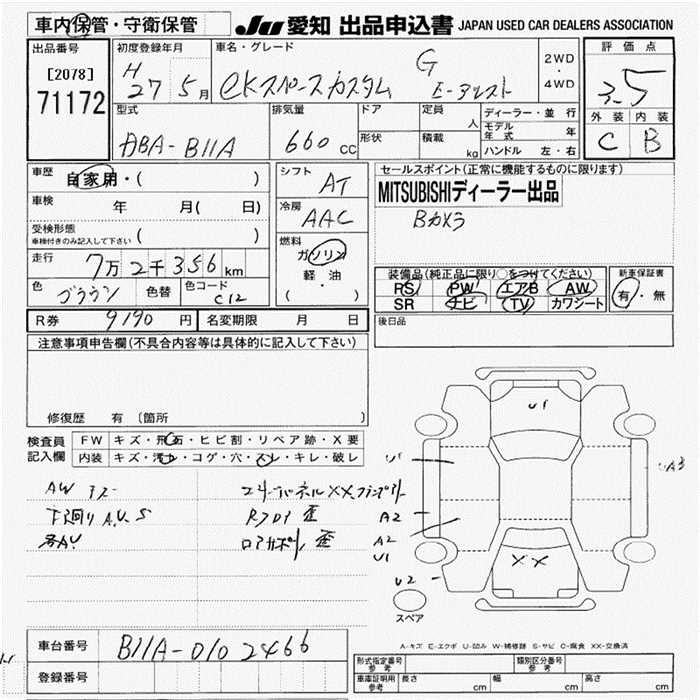 車内保管・守衛保管 JU 愛知 出品申込書 JAPAN USED CAR DEALERS ASSOCIATION
出品番号
[2078]
71172
初度登録年月
H 27 5月
車名・グレード
G
eKスペースカスタム
2WD
・
4WD
評価点
3.5
外装 内装
C B
型式
DBA-B11A
排気量
660 cc
ドア
形状
定員
人
積載
kg
ディーラー・並行
モデル年式 年
ハンドル 左・右
車歴
自家用・( )
車検
年 月( 日)
受検形態
車検付きのみ記入して下さい ( )
走行
7万 2千 356 km
色
ブラウン
色替
色コード
C12
シフト
AT
冷房
AAC
燃料
ガソリン
軽・油
( ・ )
セールスポイント(正常に機能するものに限ります)
MITSUBISHIディーラー出品
Bカメラ
装備品(純正品に限り○をつけてください)
RS PW エアB AW
SR ナビ TV カワシート
新車保証書
有・無
R券 9190 円 名変期限 月 日
後日品
注意事項申告欄(不具合内容等は具体的に記入して下さい)
修復歴 有 〔箇所
検査員
記入欄
FW キズ・飛石・ヒビ割・リペア跡・X要
内装 キズ・汚れ・コゲ・穴・スレ・キレ・破レ
AW キズ
下廻り A.U.S
各AU
エンドパネルXX
歪
ロアサポート 歪
U1
U1
A2
A2
U1
U2
UA3
XX
スペア
A-キズ E-エクボ U-凹み W-補修跡 S-サビ C-腐食 XX-交換済
車台番号 B11A-0102466
登録番号
形式指定番号
参考
類別区分番号
参考
車庫証明用
参考
長さ cm 幅 cm 高さ cm